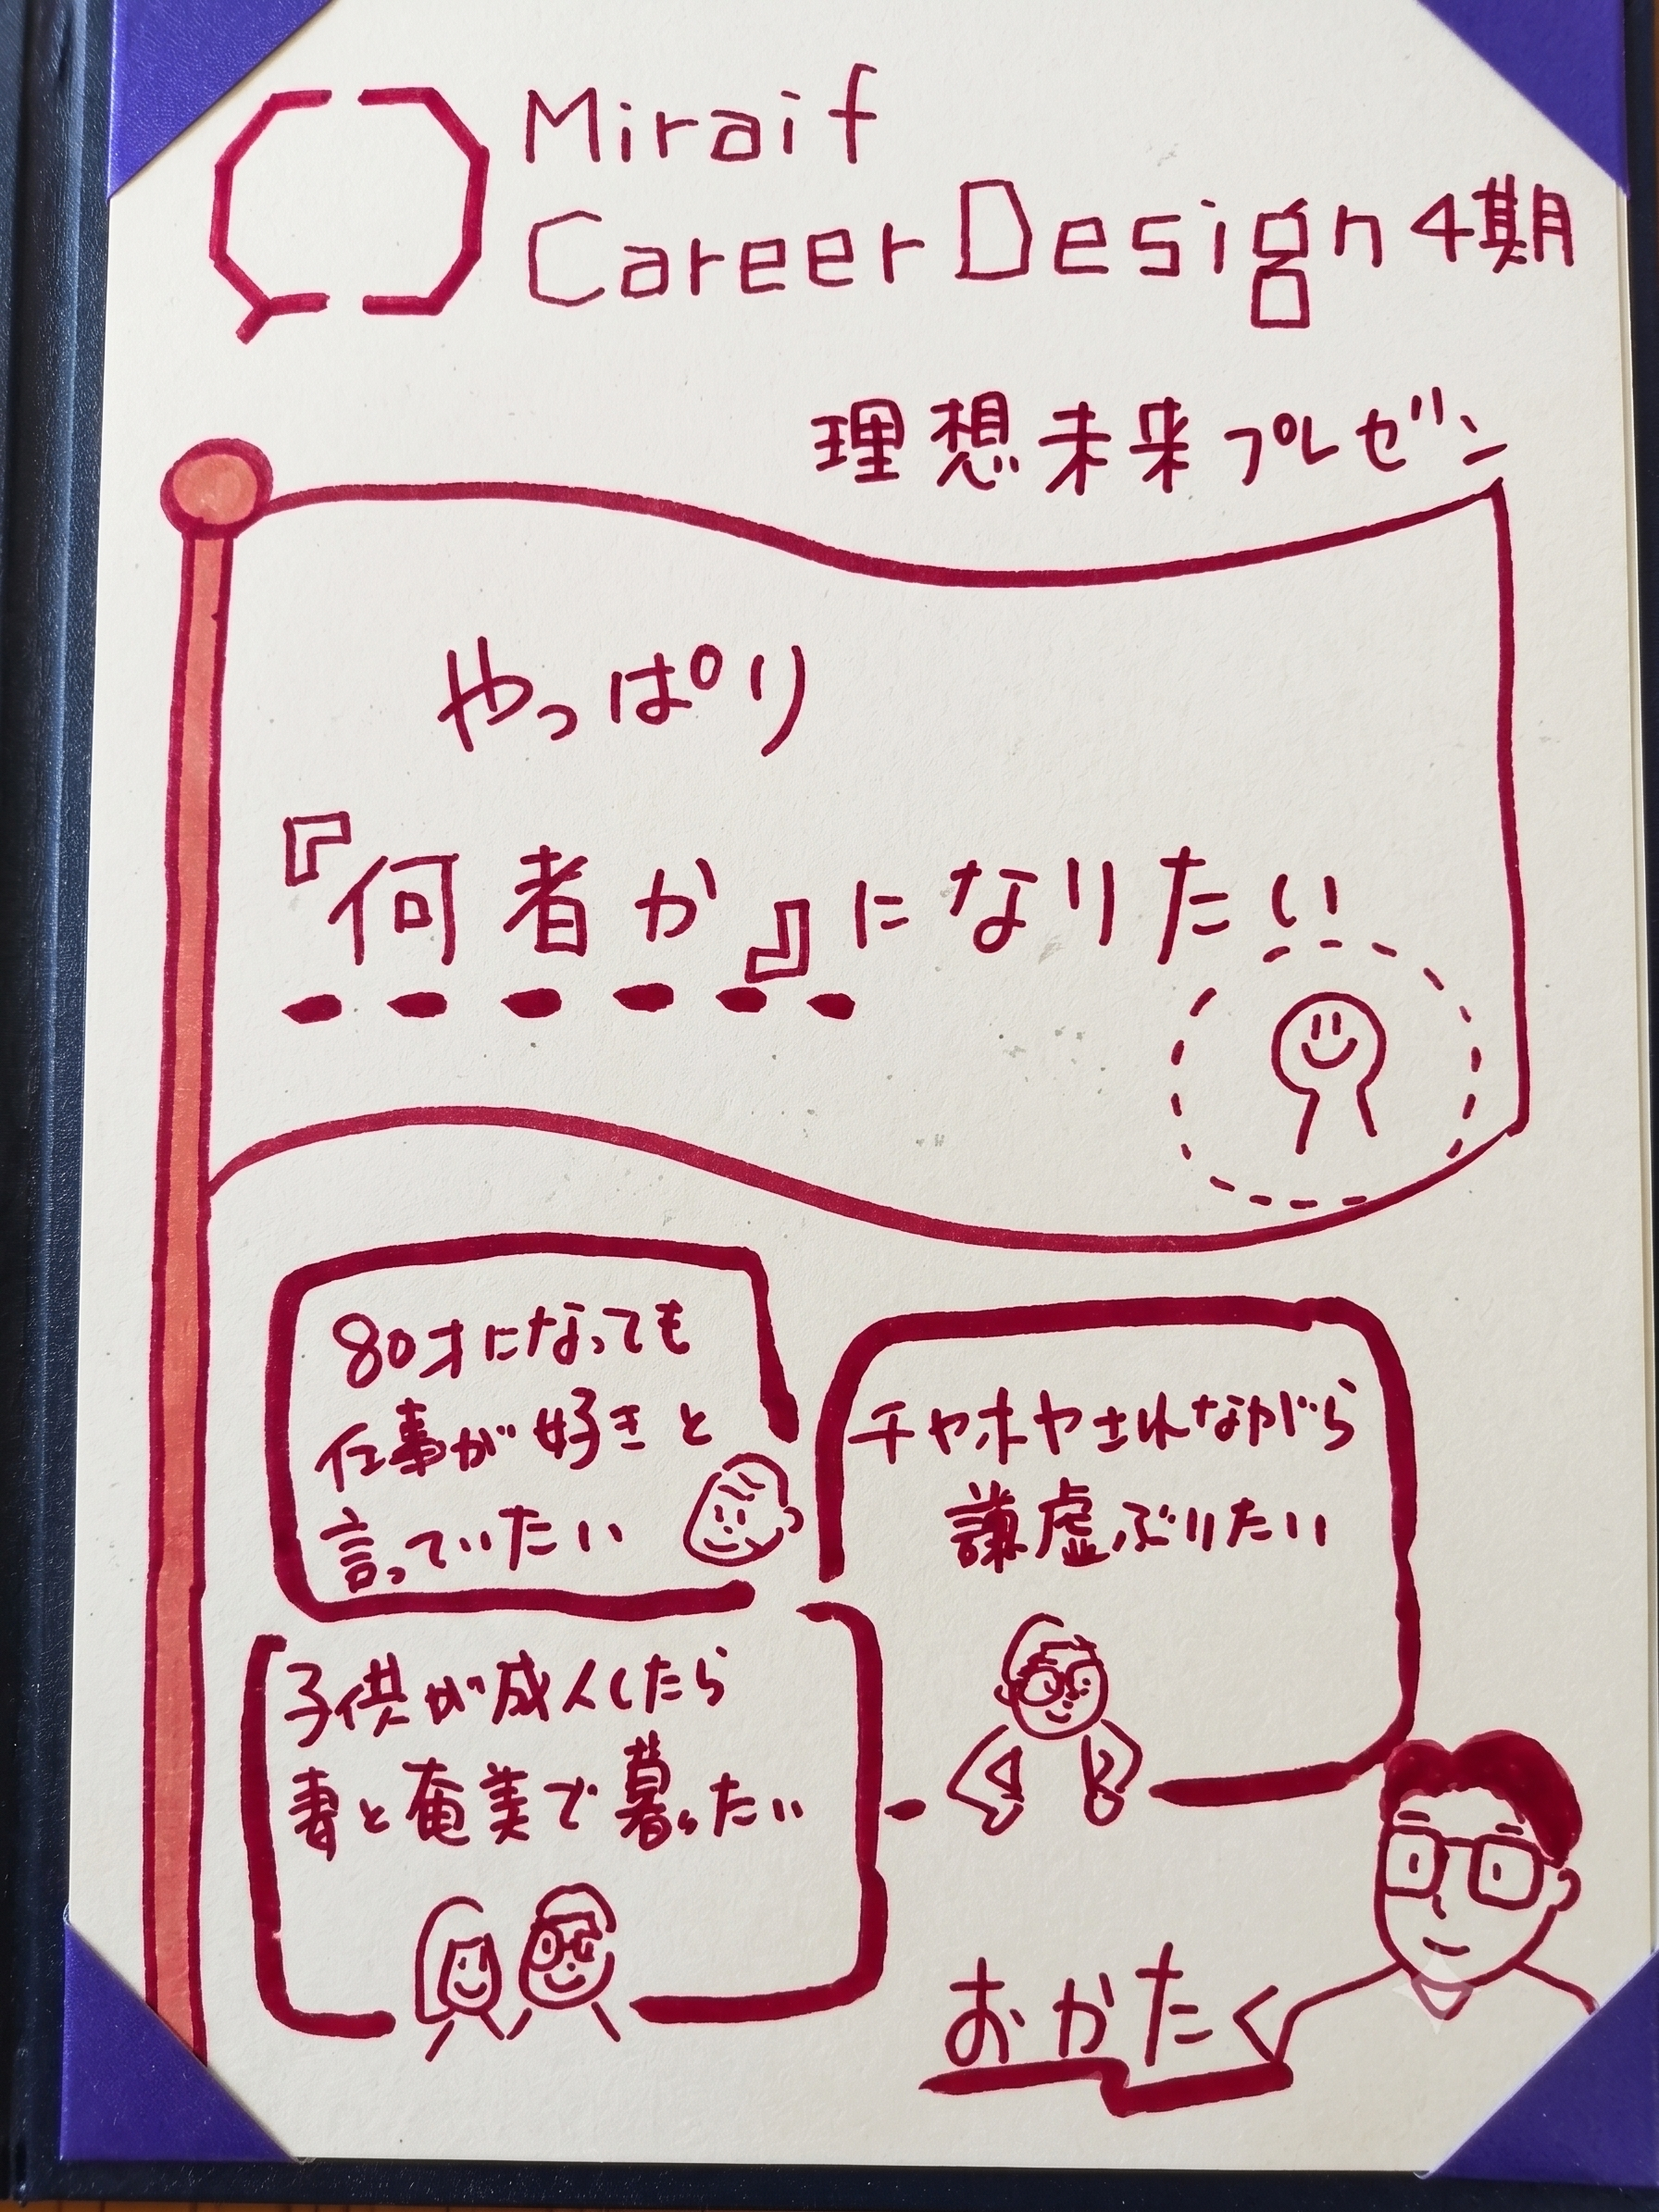 Miraif
Career Design 4期
理想未来プレゼン
やっぱり
『何者か』になりたい
80才になっても
仕事が好きと
言っていたい
チヤホヤされながら
謙虚ぶりたい
子供が成人したら
妻と奄美で暮らしたい
おかたく